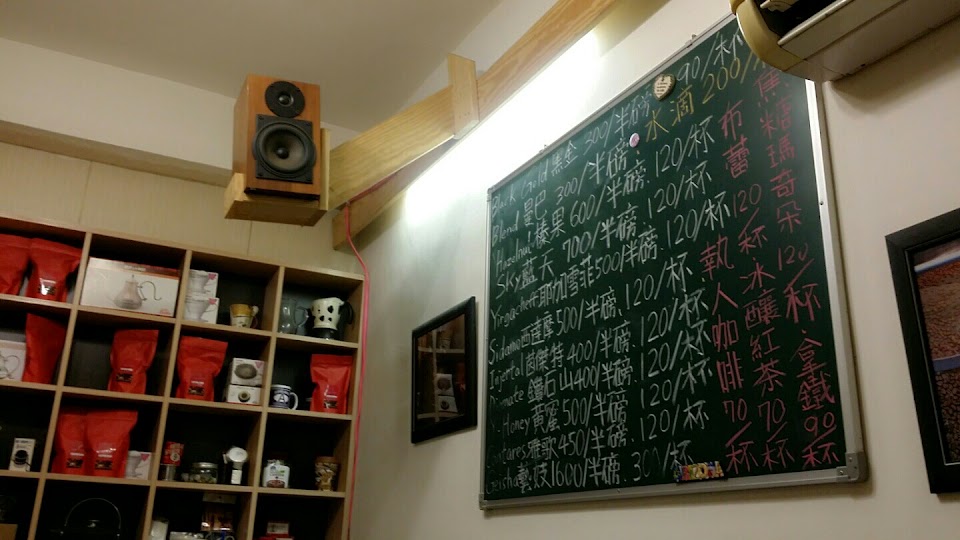 Black Gold 黑金 300/半磅. 90/杯
Blend 曼巴 300/半磅. 水滴 200/
Hazelnut 榛果 600/半磅. 120/杯
Sky 藍天 700/半磅. 120/杯
Yirgacheff 耶加雪菲 500/半磅. 120/杯
Sidamo 西達摩 500/半磅. 120/杯
茵傑特 400/半磅. 120/杯
鑽石山 400/半磅. 120/杯
Y. Honey 黃蜜 500/半磅. 120/杯
雅歌 450/半磅. 120/杯
藝妓 1600/半磅. 300/杯
焦糖瑪奇朵 120/杯. 拿鐵 90/杯
布蕾 120/杯 冰釀紅茶 70/杯
執人咖啡 70/杯